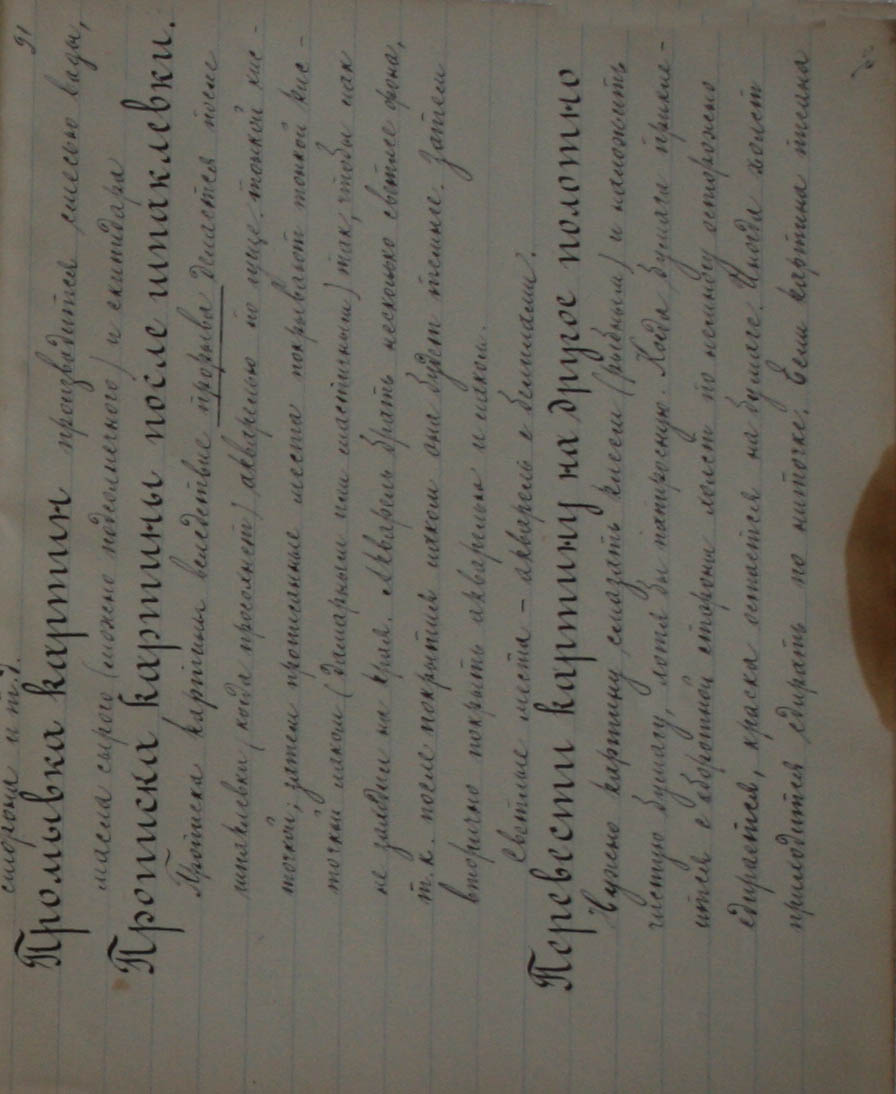 91
сторона и т.д.
Промывка картин производится смесью воды,
масла сырого (можно подсолнечного) и скипидара
Прописка картины после шпаклевки.
Прописка картины вследствие прорыва делается после
шпаклевки (когда просохнет) акварелью по гуще тонкой кис-
точкой; затем прописанные места покрывают тонкой кис-
точкой лаком (дамарным или мастичным) так, чтобы лак
не заходил на края. Акварель брать несколько светлее фона,
т.к. после покрытия лаком она будет темнее. Затем
вторично покрыть акварелью и лаком.
Светлые места – акварель с белилами.
Перевести картину на другое полотно
Нужно картину смазать клеем (рыбным) и наложить
чистую бумагу, хотя бы папиросную. Когда бумага прикле-
ится с оборотной стороны холст по немногу осторожно
сдирается, краска остается на бумаге. Иногда холст
приходится сдирать по ниточке. Если картина писана